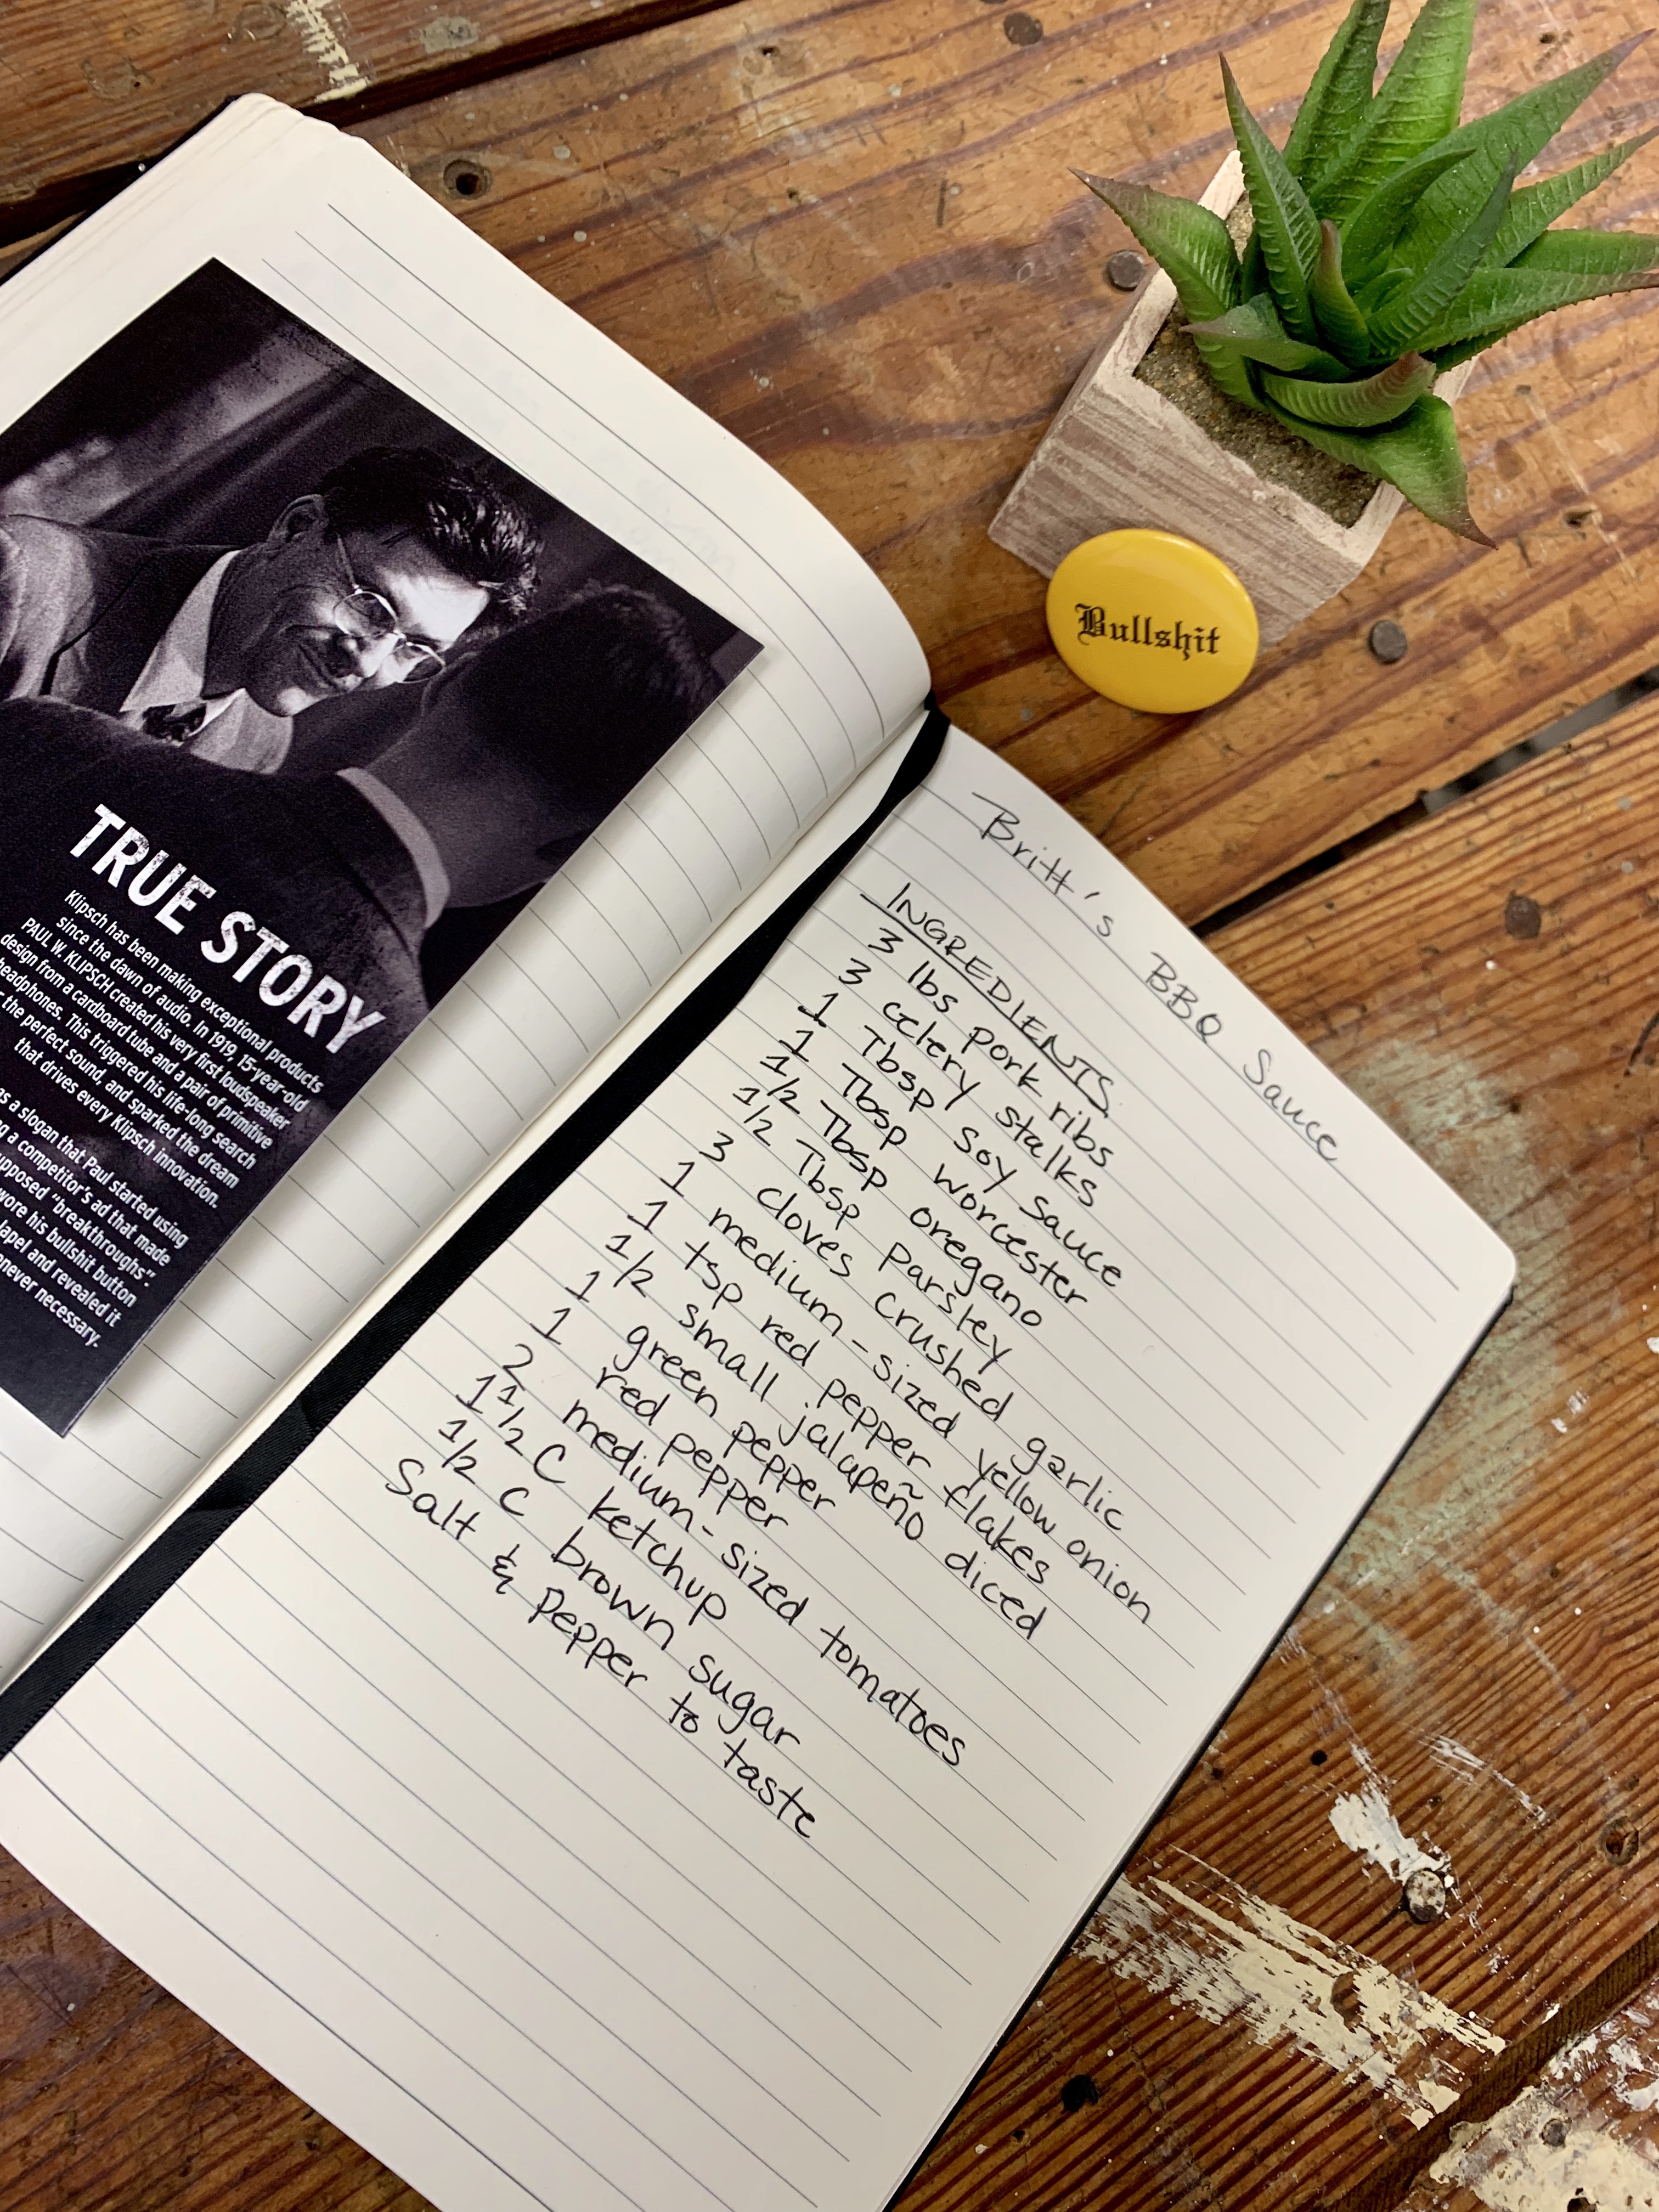 TRUE STORY
Klipsch has been making exceptional products
since the dawn of audio. In 1919, 15-year-old
PAUL W. KLIPSCH created his very first loudspeaker
design from a cardboard tube and a pair of primitive
headphones. This triggered his life-long search
the perfect sound, and sparked the dream
that drives every Klipsch innovation.
as a slogan that Paul started using
a competitor's ad that made
"breakthroughs".
wore his bullshit button
lapel and revealed it
necessary.
Bullshit
Britt's BBQ Sauce
INGREDIENTS
3 lbs pork ribs
3 celery stalks
1 Tbsp soy sauce
1 Tbsp worcester
1/2 Tbsp oregano
1/2 Tbsp Parsley
3 cloves crushed garlic
1 medium-sized yellow onion
1 tsp red pepper flakes
1/2 small jalapeño diced
1 green pepper
1 red pepper
2 medium-sized tomatoes
1 1/2 C ketchup
1/2 C brown sugar
Salt & pepper to taste